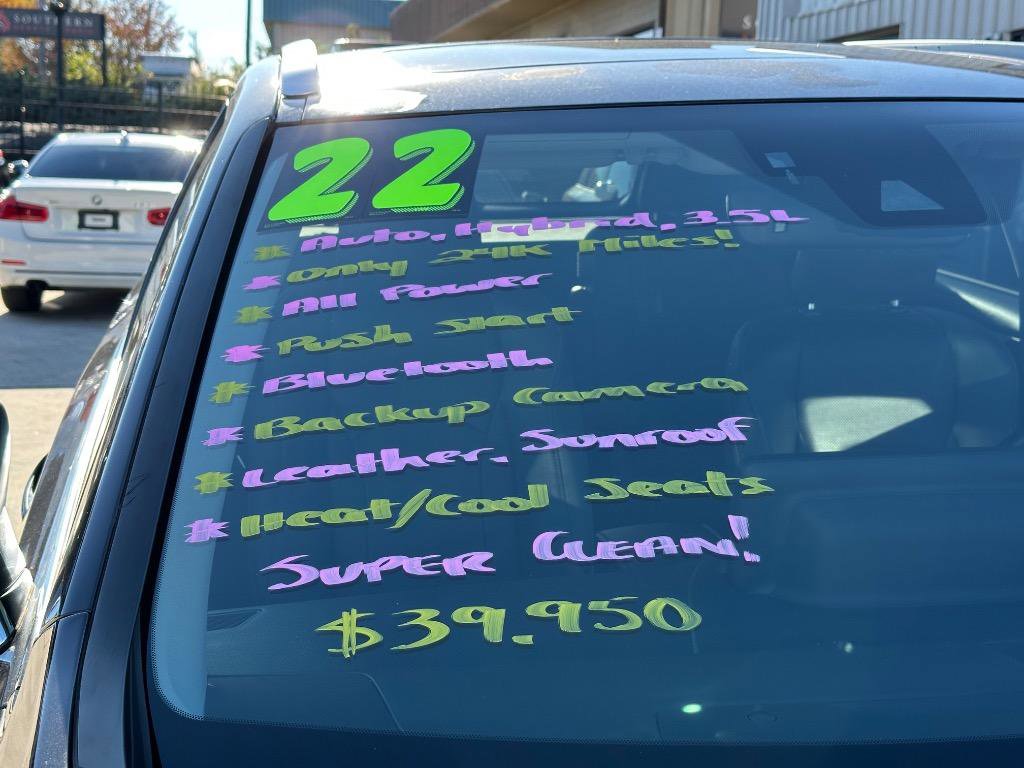 SOUTHERN
22
* Auto, Hybrid, 3.5L
* Only 24K Miles!
* All Power
* Push Start
* Bluetooth
* Backup Camera
* Leather, Sunroof
* Heat/Cool Seats
SUPER CLEAN!
$39,950